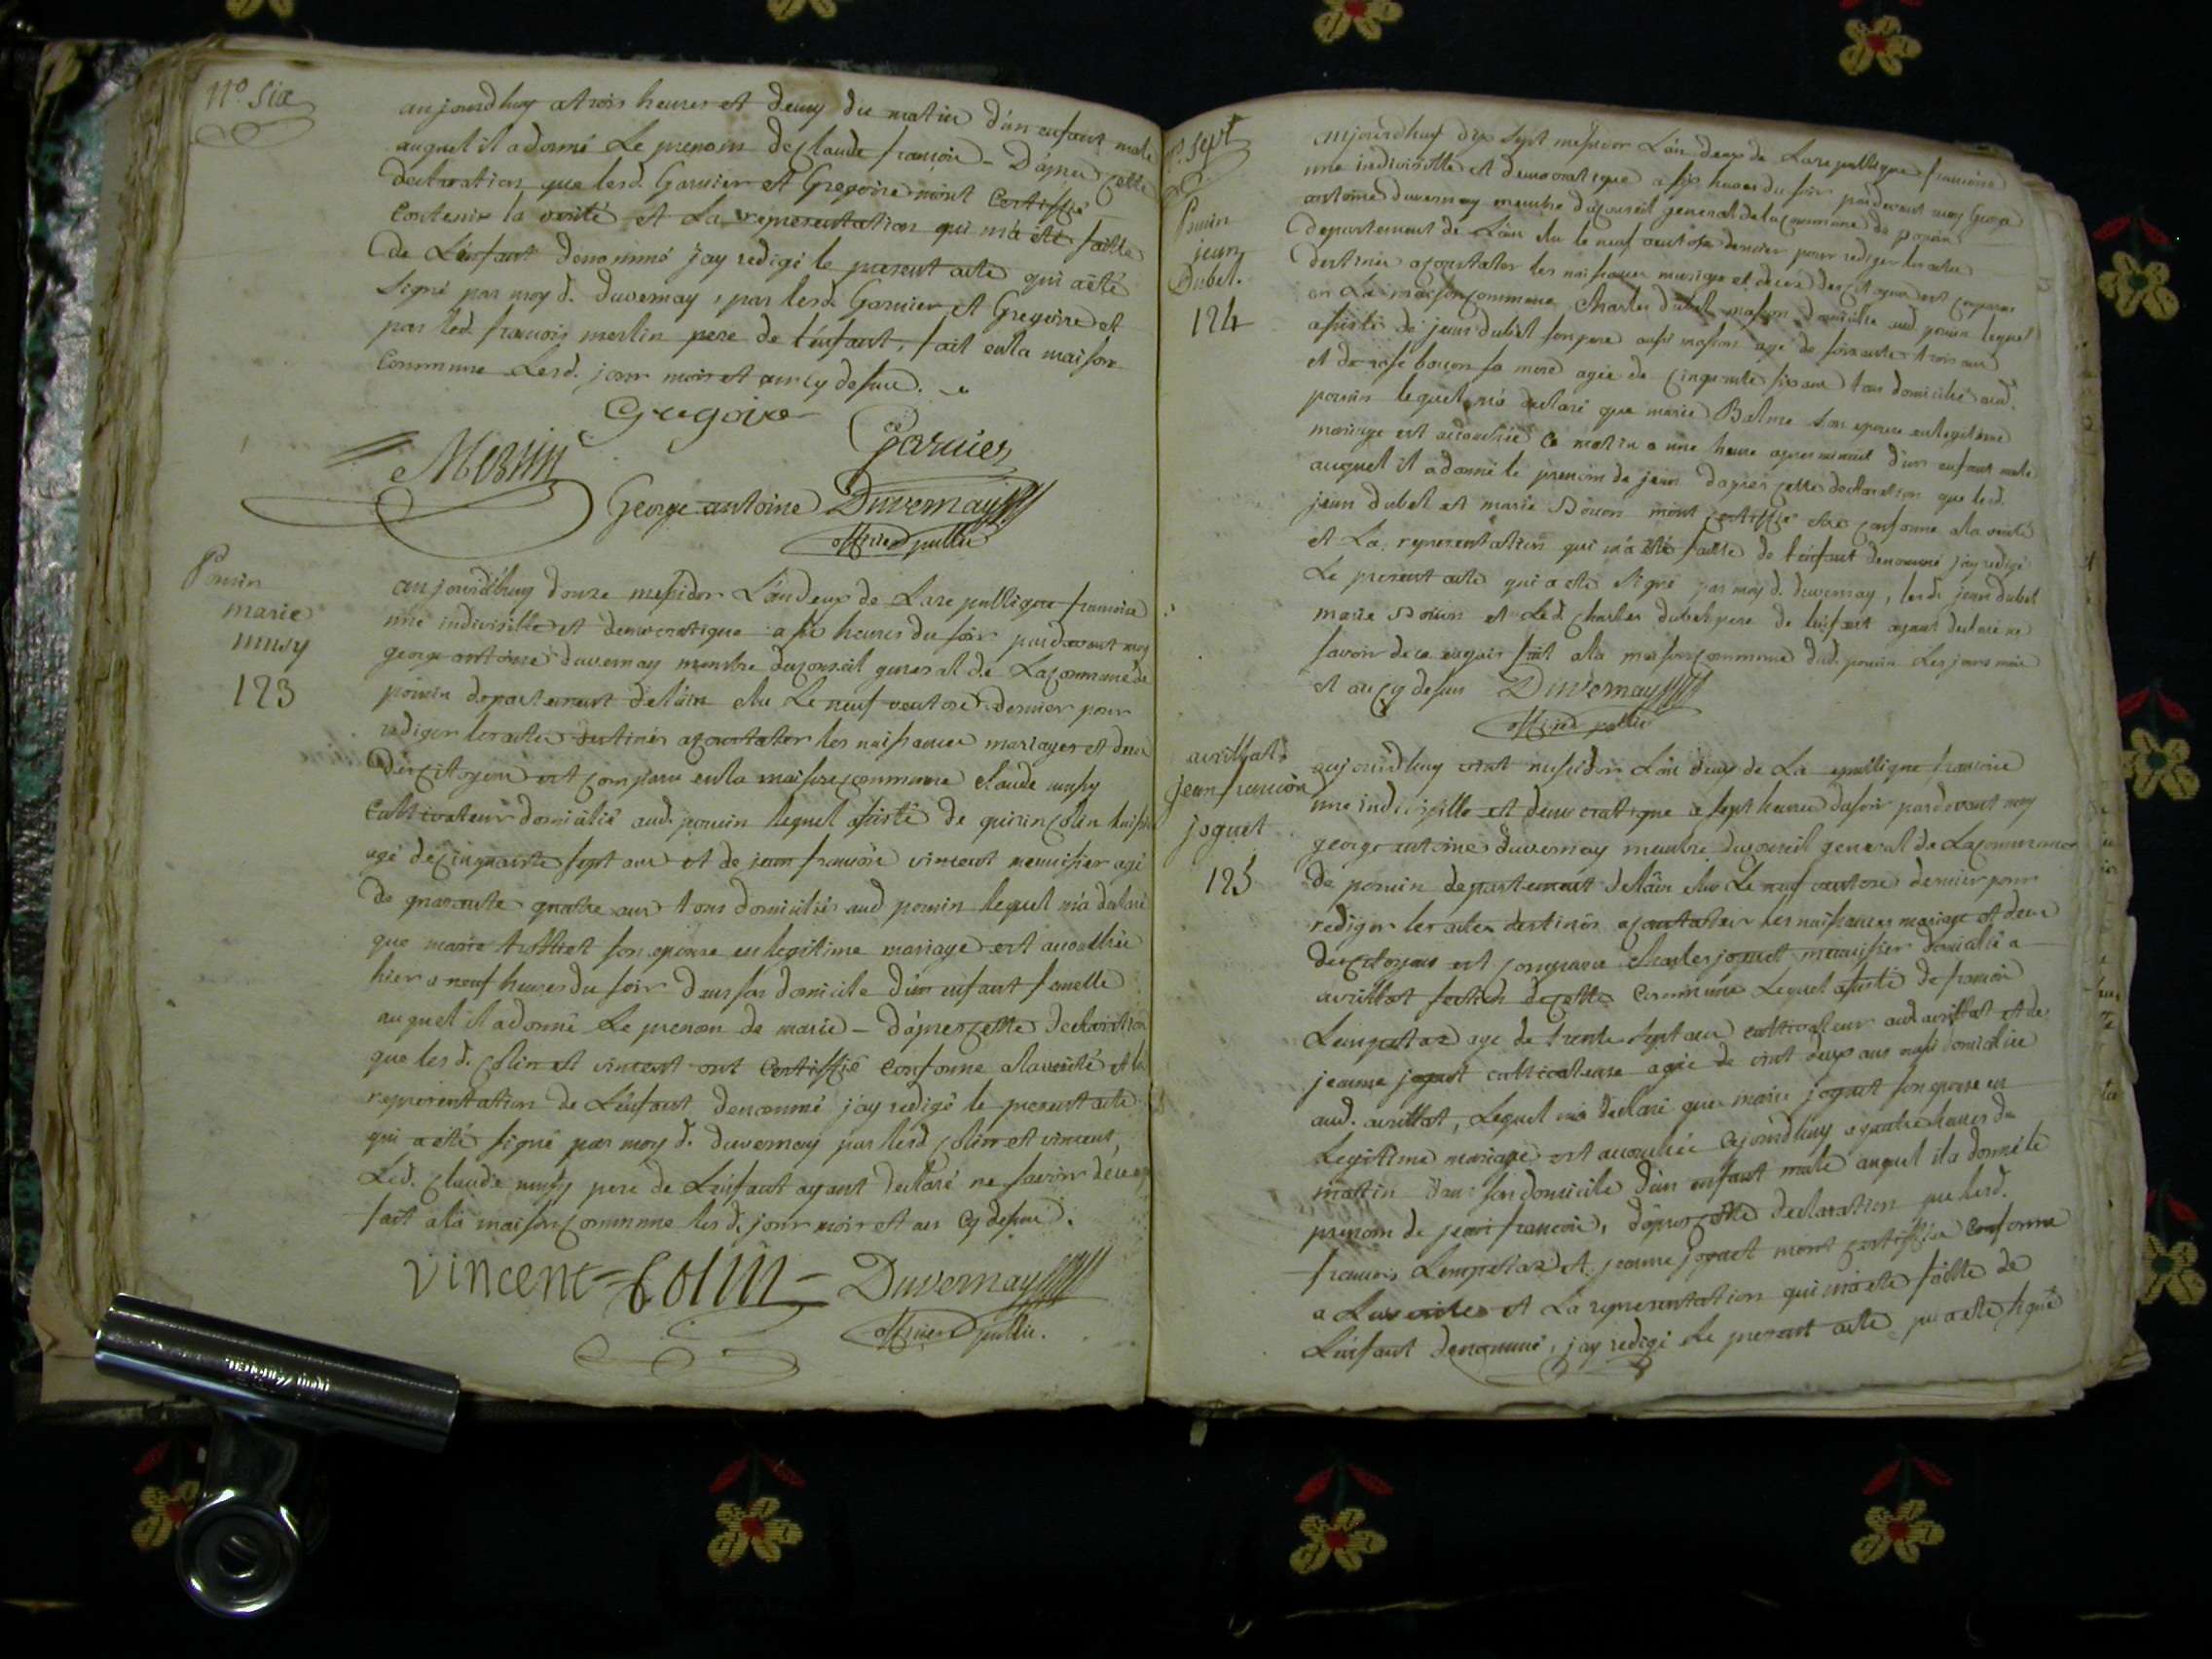 n.º Six
aujourdhuy a trois heures et demy du matin d'un enfant male
auquel il a donné Le prenom de Claude francois - D'apres cette
declaration que lesd. Garnier et Gregoire mont certiffié
contenir la verité et La representation qui m'a été faitte
de L'enfant denommé j'ay redigé le present acte qui a été
signé par moy d. Duvernay, par lesd. Garnier et Gregoire et
par led. francois merlin pere de l'enfant, fait en la maison
commune Lesd. jour mois et an cy dessus.
Gregoire
Merlin Garnier
George antoine Duvernay
officier public
Poncin
marie
mussy
123
aujourdhuy douze messidor L'an deux de La republique francoise
une indivisible et democratique a six heures du soir pardevant moy
george antoine duvernay membre du conseil general de La commune de
poncin departement de l'ain elu Le neuf ventose dernier pour
rediger les actes destinés a constater les naissances mariages et deces
des citoyens est comparu en la maison commune claude mussy
cultivateur domicilié aud. poncin lequel assisté de quirin colin huissier
agé de cinquante sept ans et de jean francois vincent menuisier agé
de quarante quatre ans tous domiciliés aud poncin lequel m'a declaré
que marie trolliet son epouse en legitime mariage est accouchée
hier a neuf heures du soir dans son domicile d'un enfant femelle
auquel il a donné Le prenom de marie - d'apres cette declaration
que lesd. colin et vincent ont certiffié conforme a la verité et la
representation de L'enfant denommé j'ay redigé le present acte
qui a été signé par moy d. duvernay par lesd colin et vincent
Led. claude mussy pere de L'enfant ayant declaré ne savoir
fait a la maison commune lesd. jour mois et an cy dessus.
vincent = Colin = Duvernay
officier public.
n.º sept
Poncin
jean
Dubet.
124
aujourdhuy dix sept messidor L'an deux de La republique francoise
une indivisible et democratique a six heures du soir pardevant moy George
antoine duvernay membre du conseil general de la commune de poncin
departement de L'ain elu le neuf ventose dernier pour rediger les actes
destinés a constater les naissances mariages et deces des citoyens est comparu
en La maison commune Charles dubet masson domicilié aud. poncin lequel
assisté de jean dubet son pere aussi masson agé de soixante trois ans
et de bouon sa mere agée de cinquante six ans tous domiciliés aud.
poncin lequel m'a declaré que marie Balme son epouse en legitime
mariage est accouchée ce matin a une heure apres minuit d'un enfant male
auquel il a donné le prenom de jean d'apres cette declaration que lesd.
jean dubet et marie Bouon mont certiffié etre conforme a la verité
et La representation qui m'a été faitte de l'enfant denommé j'ay redigé
Le present acte qui a été signé par moy d. duvernay, lesd. jean dubet
marie Bouon et Led. Charles dubet pere de l'enfant ayant declaré ne
savoir de ce requis fait a la maison commune dud. poncin Les jours mois
et an cy dessus Duvernay
officier public
avrillat.
jean francois
joguet
125
aujourdhuy vint messidor L'an deux de La republique francoise
une indivisible et democratique a sept heures du soir pardevant moy
george antoine duvernay membre du conseil general de La commune
de poncin departement de l'ain elu Le neuf ventose dernier pour
rediger les actes destinés a constater les naissances mariage et deces
des citoyens est comparu charles joguet menuisier domicilié a
avrillat section de cette commune Lequel assisté de francois
Lempetaz agé de trente sept ans cultivateur aud. avrillat et de
jeanne joguet cultivateuse agée de vint deux ans aussi domiciliée
aud. avrillat, Lequel m'a declaré que marie joguet son epouse en
Legitime mariage est accouchée cejourdhuy a quatre heures du
matin dans son domicile d'un enfant male auquel il a donné le
prenom de jean francois, d'apres cette declaration que lesd.
francois Lempetaz et jeanne joguet mont certiffié conforme
a La verité et La representation qui m'a eté faitte de
L'enfant denommé, j'ay redigé Le present acte qui a eté signé